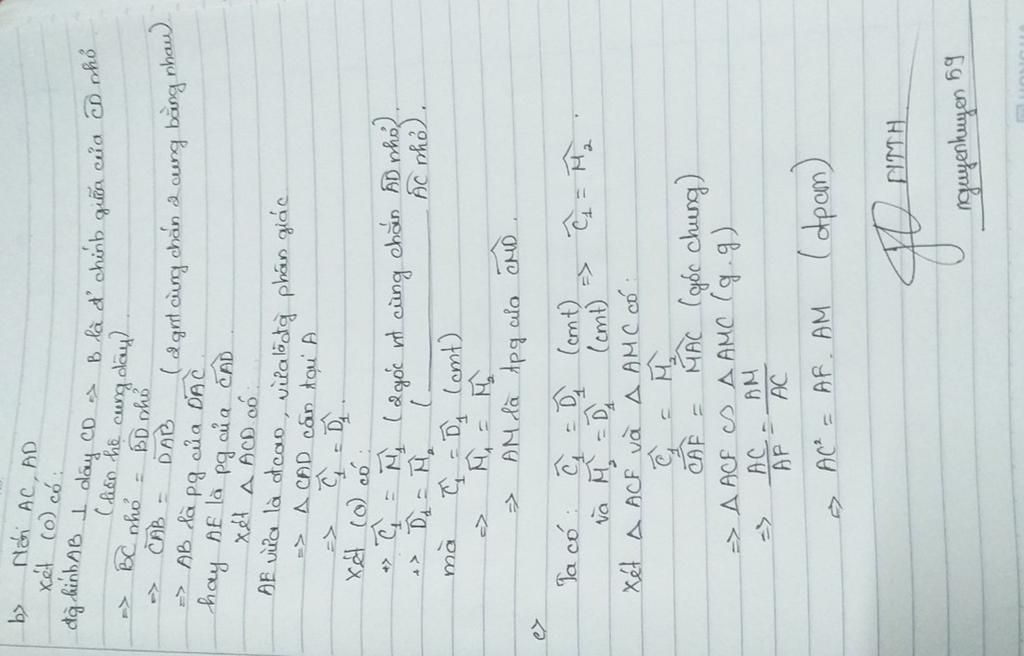 b> Nối AC, AD
Xét (O) có:
đg kính AB ⊥ dây CD => B là đ' chính giữa của CD nhỏ
(liên hệ cung dây)
=> BC nhỏ = BD nhỏ
=> CAB = DAB (2 gnt cùng chắn 2 cung bằng nhau)
=> AB là pg của DAC
hay AE là pg của CAD
Xét Δ ACD có:
AE vừa là đcao, vừa là đg phân giác
=> Δ CAD cân tại A
=> C₁ = D₁
Xét (O) có:
+> C₁ = M₁ (2 góc nt cùng chắn AD nhỏ)
+> D₁ = M₂ ( ______ AC nhỏ).
mà C₁ = D₁ (cmt)
=> M₁ = M₂
=> AM là tpg của CMD.
c>
Ta có: C₁ = D₁ (cmt)
và M₂ = D₁ (cmt) => C₁ = M₂.
Xét Δ ACF và Δ AMC có:
C₁ = M₂
CAF = MAC (góc chung)
=> Δ ACF ∽ Δ AMC (g.g)
=> AC/AF = AM/AC
=> AC² = AF. AM (đpcm)
nguyenhuyen 59